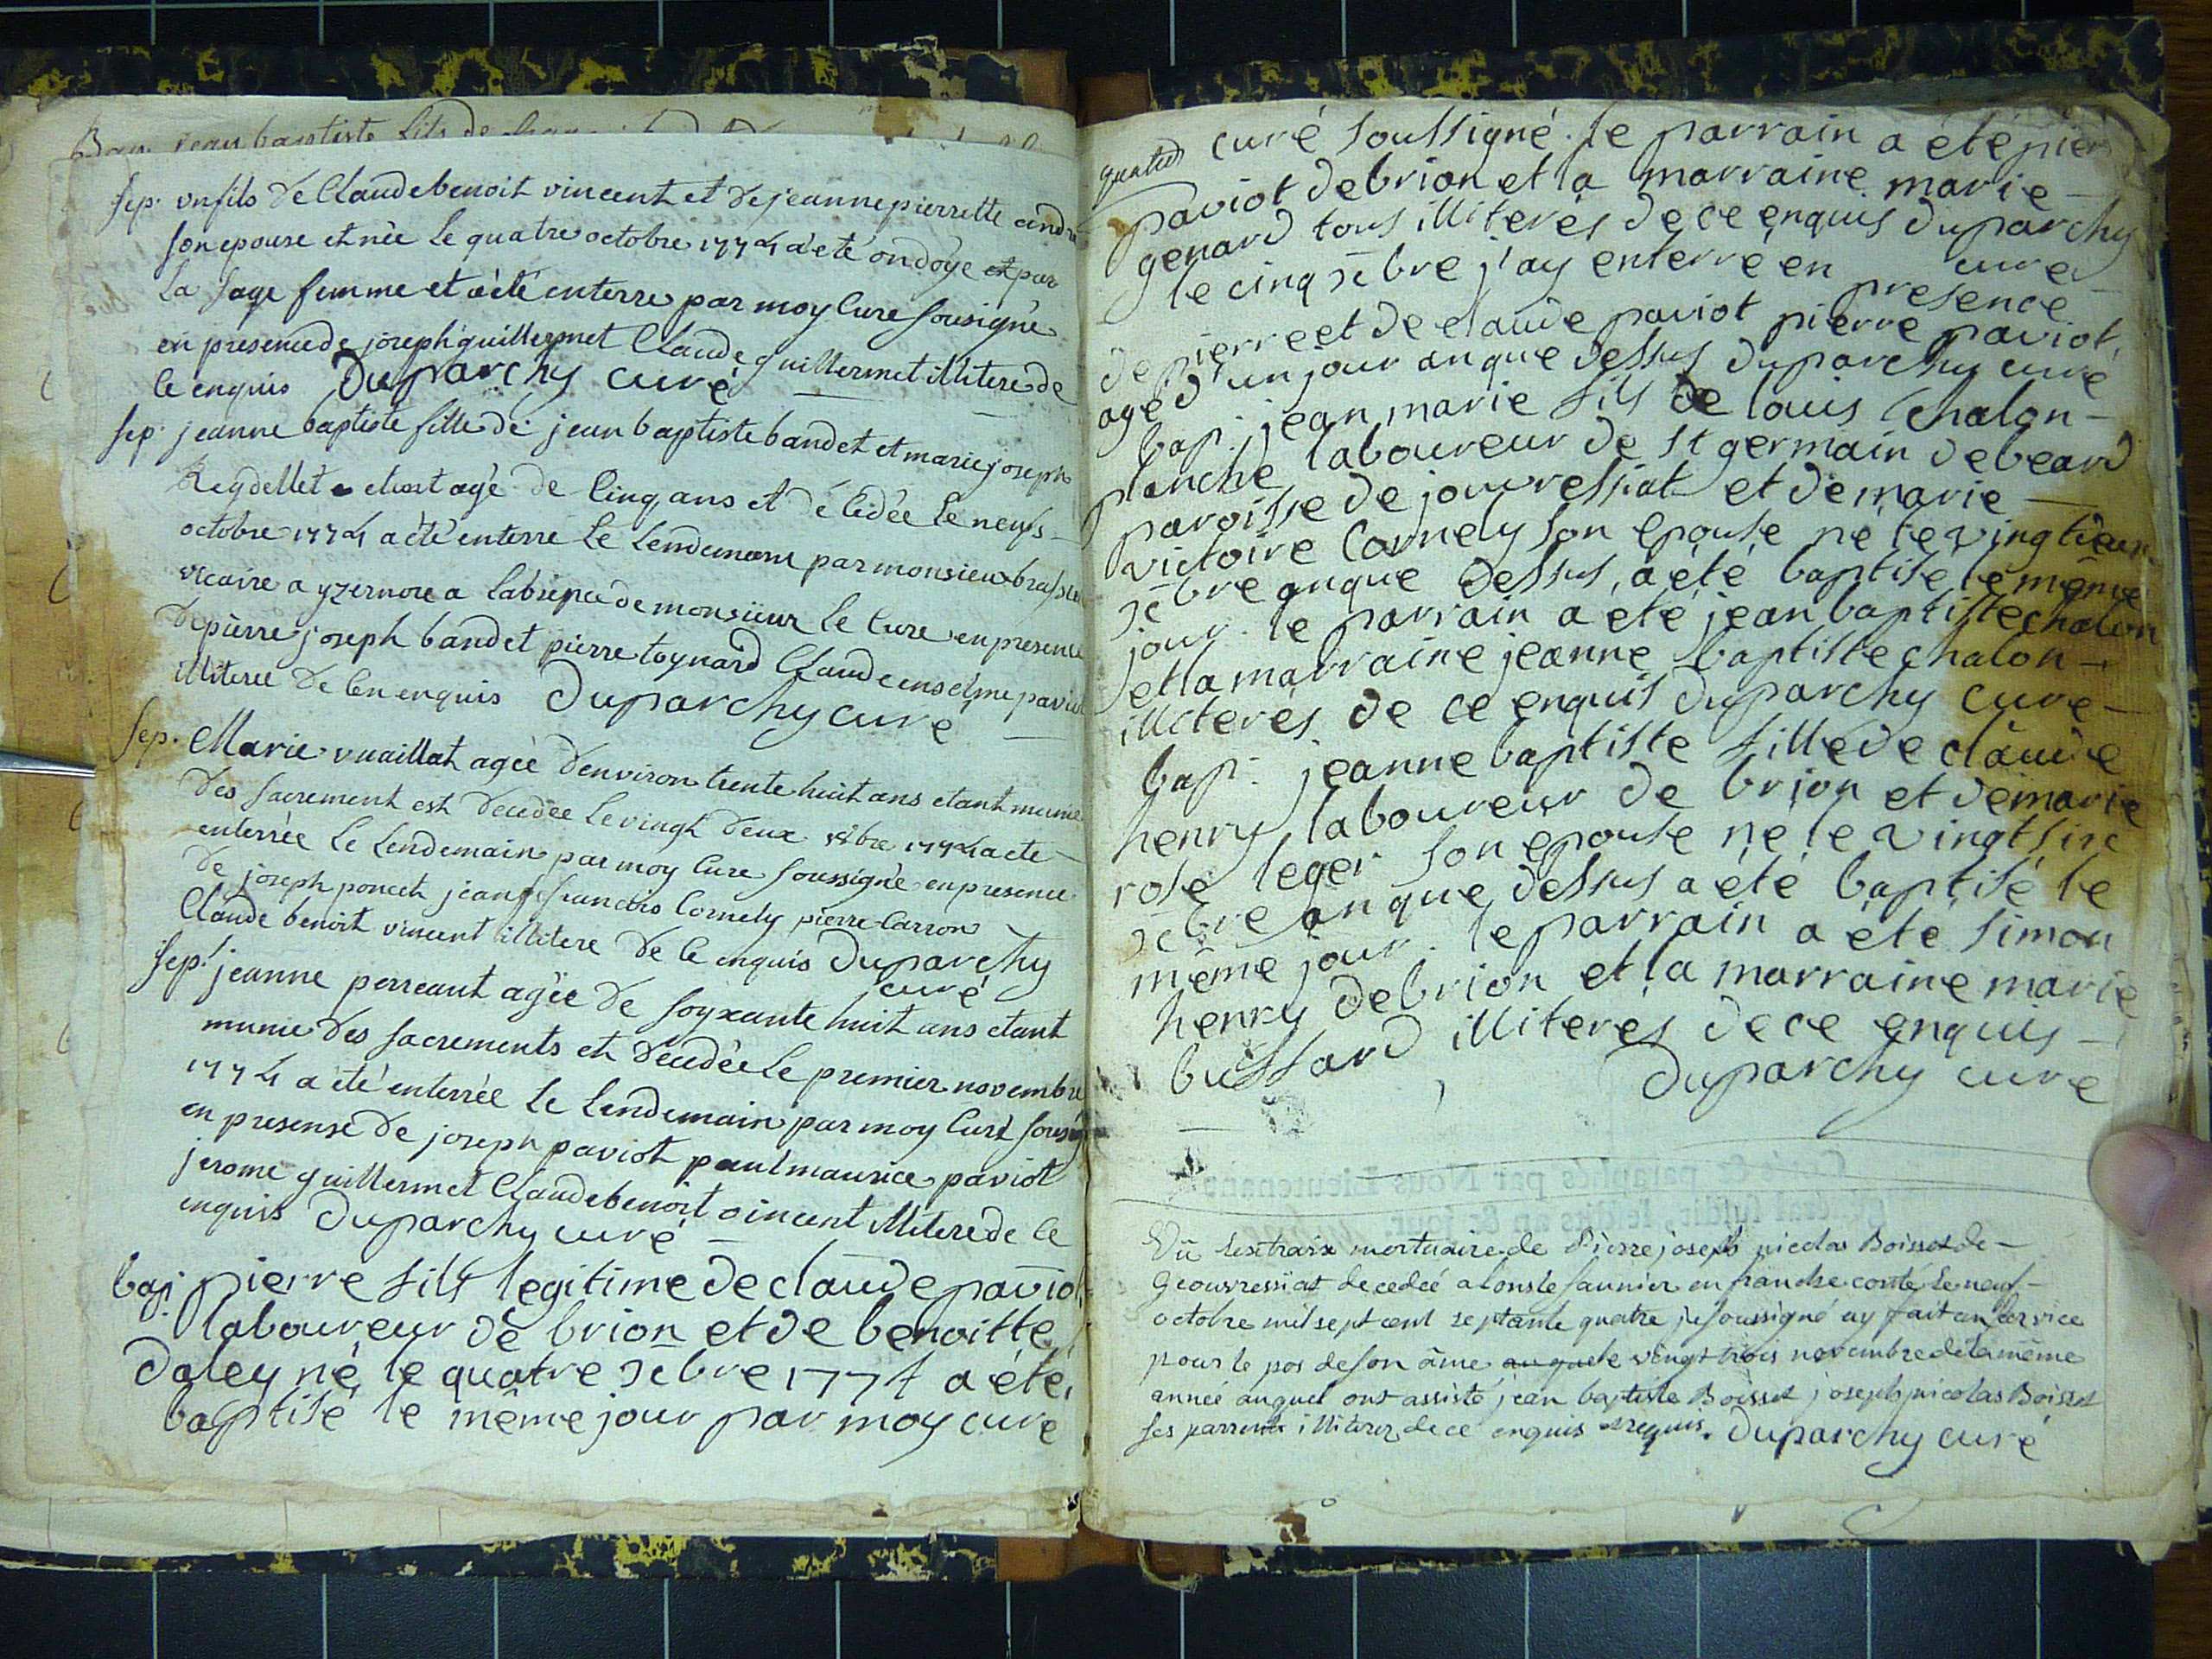 Bap. jean baptiste fils de
sep. un fils de Claude benoit vincent et de jeanne pierrette
son epouse et née le quatre octobre 1774 a été ondoyé et par
la sage femme et a été enterre par moy Curé sousigné
en presence de joseph guillermet Claude guillermet illiteré de
ce enquis Duparchy curé
sep. jeanne baptiste fille de jean baptiste bandet et marie joseph
Reydellet agé de Cinq ans et décédée le neufs
octobre 1774 a été enterré le Lendemain par monsieur
vicaire a yzernore a Labsence de monsieur le Curé en presence
de pierre joseph bandet pierre toynard Claude enselme paviot
illiteré de Cen enquis Duparchy curé
sep. Marie vuaillat agée denviron trente huit ans etant munie
des sacrement est decedée le vingt deux 8bre 1774 a ete
enterrée le Lendemain par moy Curé soussigné en presence
de joseph poncet jean francois Cornely pierre Carron
Claude benoit vincent illiteré de ce enquis Duparchy
curé
sep. jeanne perreaut agée de soyxante huit ans etant
munie des sacrements et decedée le premier novembre
1774 a été enterrée le Lendemain par moy Curé
en presense de joseph paviot paul maurice paviot
jerome guillermet Claude benoist vincent illiteré de ce
enquis Duparchy curé
bap. pierre fils legitime de claude paviot
laboureur de brion et de benoitte
daley né le quatre xbre 1774 a été
baptisé le même jour par moy curé
curé soussigné. le parrain a été
paviot de brion et la marraine marie
genard tous illiterés de ce enquis duparchy
curé
le cinq xbre j'ay enterré en presence
de pierre et de claude paviot pierre paviot,
agé d'un jour an que dessus duparchy curé
bap. jean marie fils de louis Chalon-
planche laboureur de st germain de beard
paroisse de jouvressiat et de marie
victoire Cornely son epouse né le vingtieme
xbre an que dessus, a été baptisé le même
jour. le parrain a été jean baptiste chalon
et la marraine jeanne baptiste chalon-
illiterés de ce enquis duparchy curé-
bap. jeanne baptiste fille de claude
henry laboureur de brion et de marie
rose leger son epouse né le vingt six
xbre an que dessus a été baptisé le
même jour. le parrain a été simon
henry de brion et la marraine marie
bussard illiterés de ce enquis
duparchy curé
Cotés & paraphés par Nous Lieutenant
général susdit, lesdits an & jour.
Vû lextrait mortuaire de Pierre joseph nicolas Boisset de
Geouvressiat decedeé a lonsle saunier en franche comté le neuf
octobre mil sept cent septante quatre je soussigné ay fait un service
pour le pos de son âme auquele vingt trois novembre de la même
année auquel ont assisté jean baptiste Boisset joseph nicolas Boisset
ses parrents illiterez de ce enquis et requis. Duparchy curé